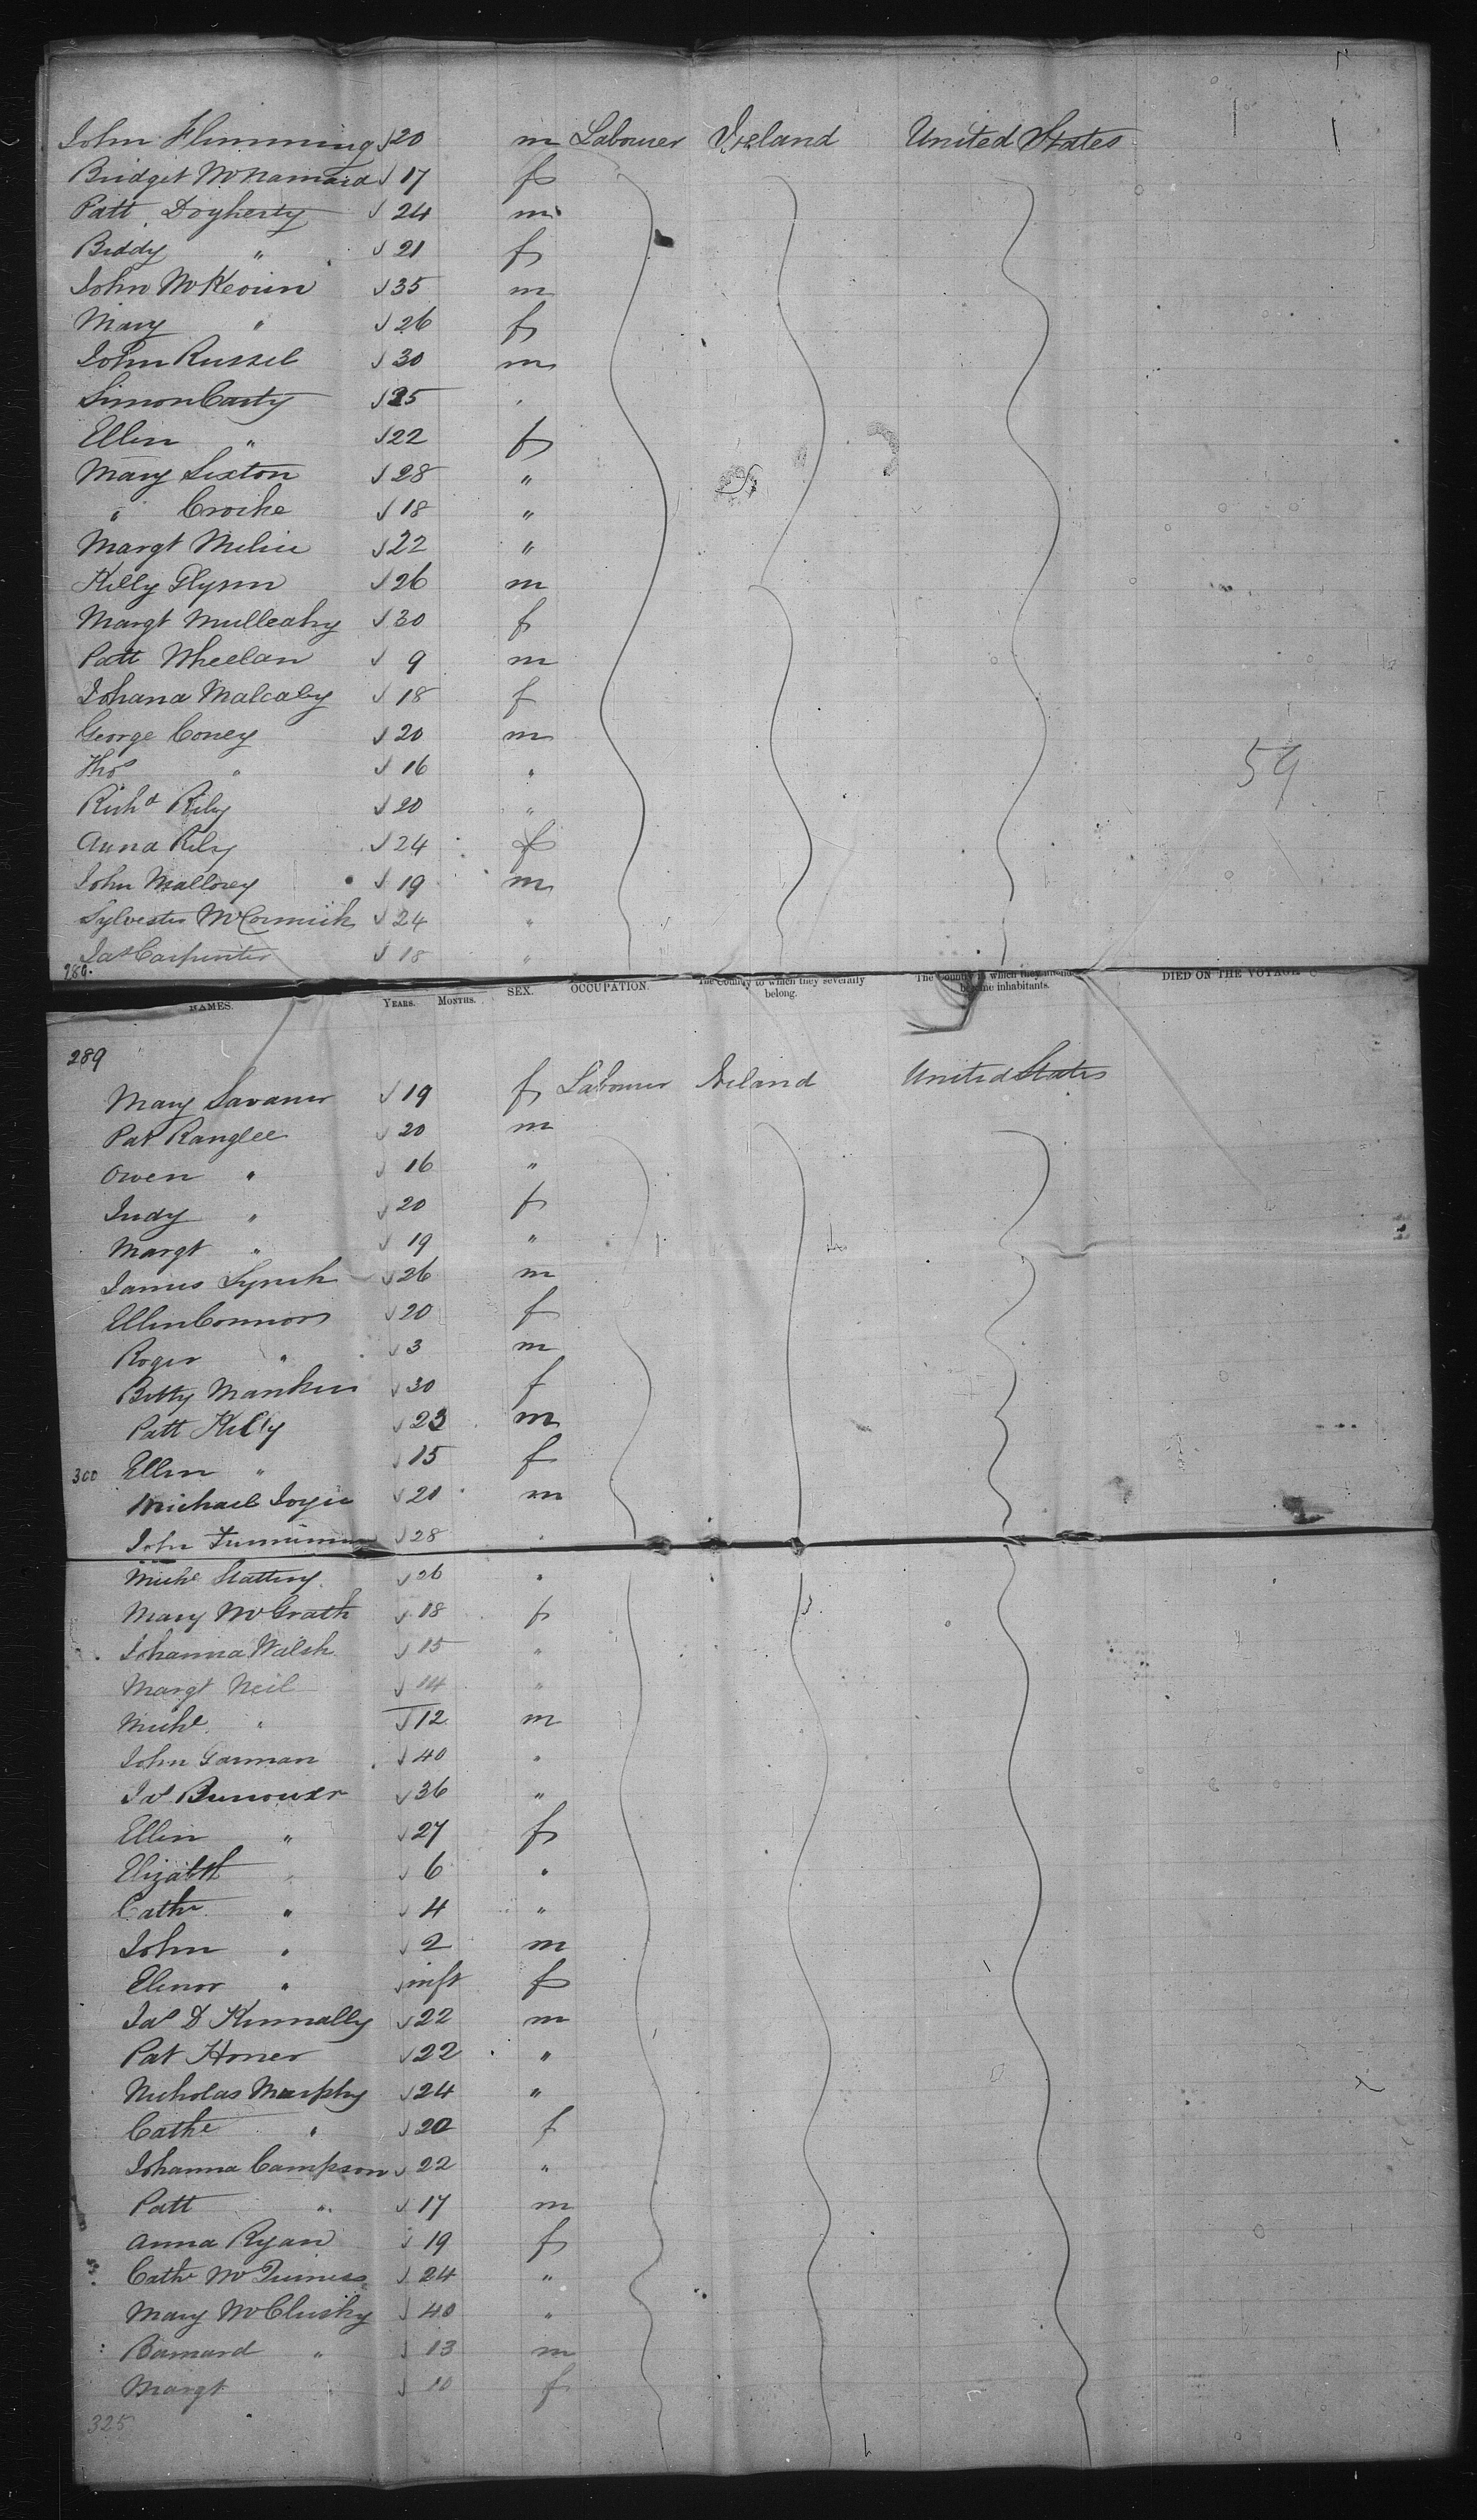 John Flimming √ 20 m Labourer Ireland United States
Bridget McNamara √ 17 f
Patt Dogherty √ 24 m
Biddy " √ 21 f
John McKeoun √ 35 m
Mary " √ 26 f
John Russel √ 30 m
Simon Carty √ 25 "
Ellen " √ 22 f
Mary Sexton √ 28 "
" Crooke √ 18 "
Margt √ 22 "
Killy Glynn √ 26 m
Margt Mulleahy √ 30 f
Patt Wheelan √ 9 m
Johana Malcaby √ 18 f
George Coney √ 20 m
Thos " √ 16 "
Richd Rily √ 20 "
Anna Rily √ 24 f
John Mallorey √ 19 m
Sylvester McCormick √ 24 "
Jas Carpenter √ 18 "
289.
NAMES. YEARS. MONTHS. SEX. OCCUPATION. The Country to which they severally belong. The Country in which they intend become inhabitants. DIED ON THE VOYAGE
59
289
Mary √ 19 f Labourer Ireland United States
Pat Ranglee √ 20 m
Owen " √ 16 "
Judy " √ 20 f
Margt " √ 19 "
James Lynch √ 26 m
Ellen Connors √ 20 f
Roger " √ 3 m
Betty √ 30 f
Patt Kelly √ 23 m
300 Ellen " √ 15 f
Michael Joyce √ 20 m
John √ 28 "
Michl Slattery √ 26 "
Mary McGrath √ 18 f
Johanna Walsh √ 15 "
Margt Neil √ 14 "
Michl " √ 12 m
John Garman √ 40 "
Jas √ 36 "
Ellen " √ 27 f
Elizabth " √ 6 "
Cathe " √ 4 "
John " √ 2 m
Elenor " √ inft f
Jas D Kennally √ 22 m
Pat Honer √ 22 "
Nicholas Murphy √ 24 "
Cathe " √ 20 f
Johanna Campson √ 22 "
Patt " √ 17 m
Anna Ryan √ 19 f
Cathe McGuiness √ 24 "
Mary McClusky √ 40 "
Barnard " √ 13 m
Margt √ 10 f
325